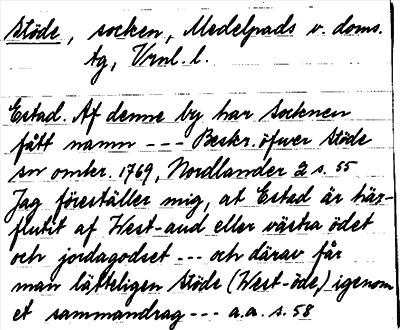 Stöde, socken, Medelpads v. doms.
tg, Vrnl. l.
Estad. Af denne by har Socknen
fått namn --- Beskr. öfwer Stöde
sn omkr. 1769, Nordlander 2 s. 55
Jag föreställer mig, at Estad är här-
flutit af West-aud eller västra ödet
och jordagodset --- och därav får
man lätteligen Stöde (West-öde,) igenom
et sammandrag --- a.a. s. 58